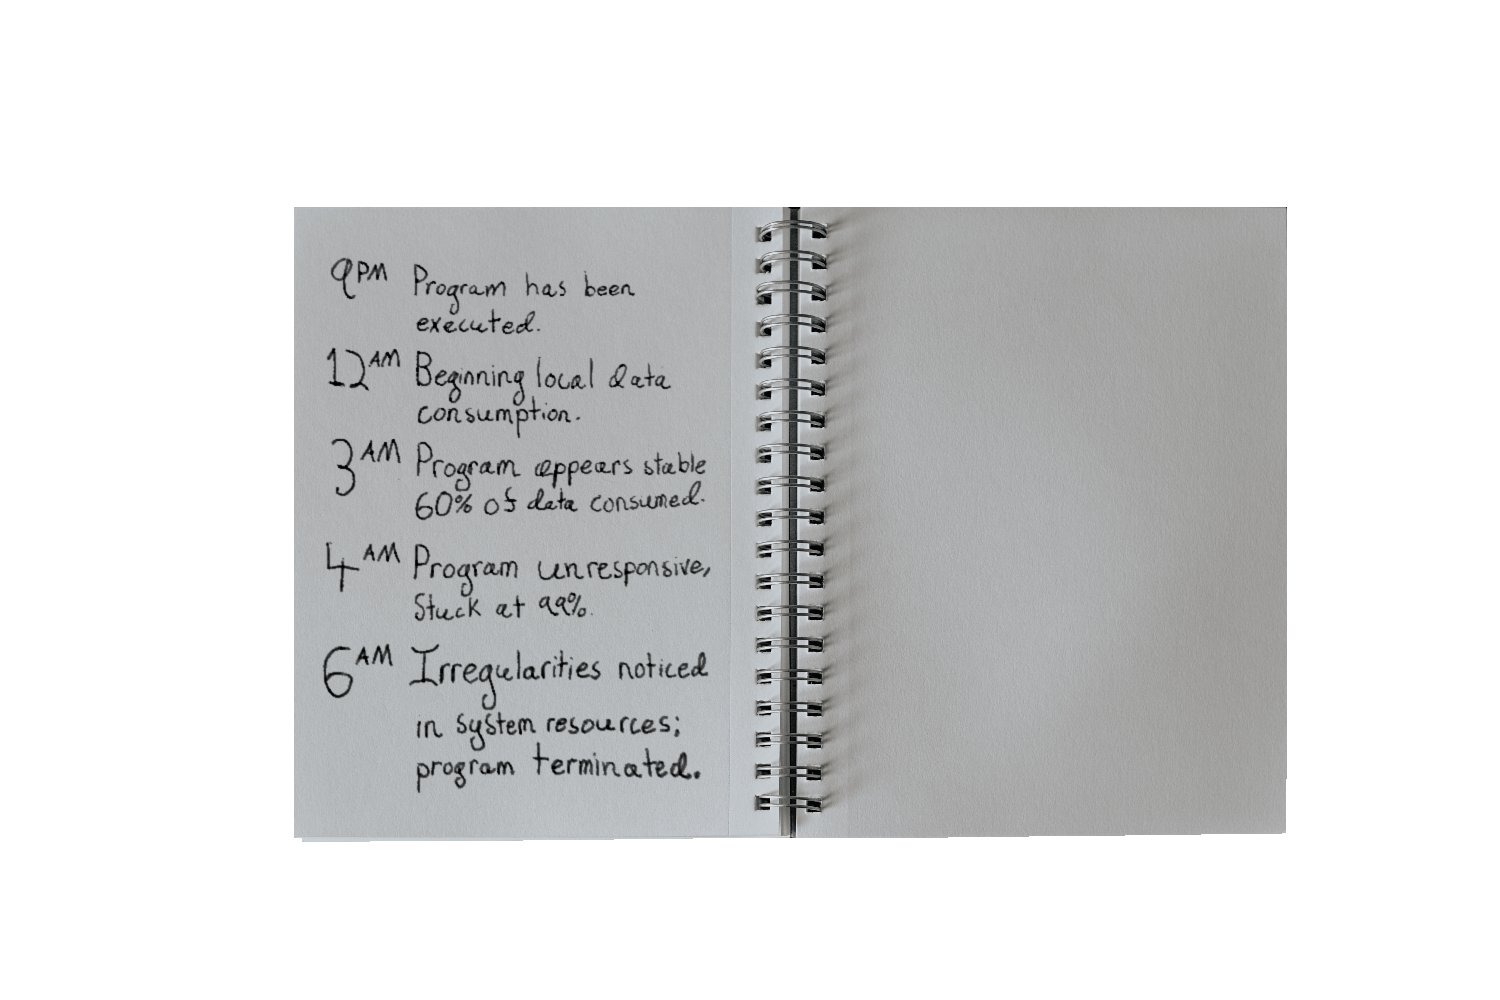 9PM Program has been
executed.
12AM Beginning local data
consumption.
3AM Program appears stable
60% of data consumed.
4AM Program unresponsive,
Stuck at 99%.
6AM Irregularities noticed
in system resources;
program terminated.